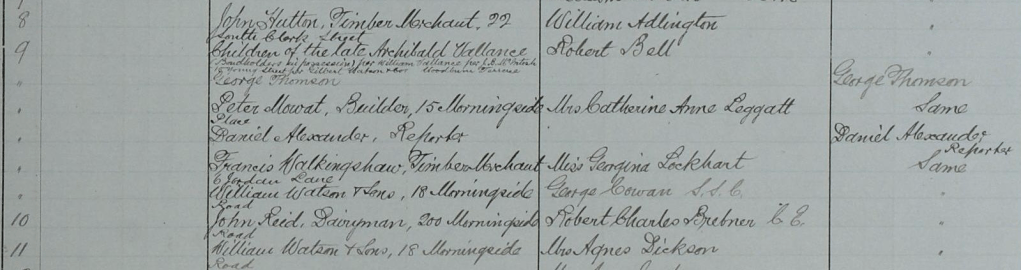 8 John Hutton, Timber Merchant, 22 William Adlington "
South Clerk Street
9 Children of the late Archibald Vallance Robert Bell "
Bondholders in possession) per William Vallance per
18 Young Street per Gilbert Watson
" George Thomson George Thomson
" Peter Mowat, Builder, 15 Morningside Mrs Catherine Anne Leggatt Same
Place
" Daniel Alexander, Reporter Daniel Alexander
Reporter
" Francis Walkingshaw, Timber Merchant Miss Georgina Lockhart Same
6 Jordan Lane
" William Watson & Sons, 18 Morningside George Cowan S.S.C. "
Road
10 John Reid, Dairyman, 200 Morningside Robert Charles Brebner C.E. "
Road
11 William Watson & Sons, 18 Morningside Mrs Agnes Dickson "
Road